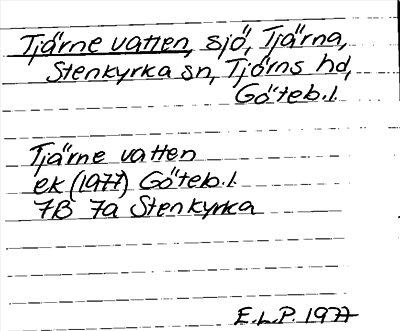 Tjärne vatten, sjö, Tjärna,
Stenkyrka sn, Tjörns hd,
Göteb.l.
Tjärne vatten
ek (1977) Göteb.l.
7B 7a Stenkyrka
E.L.P. 1977